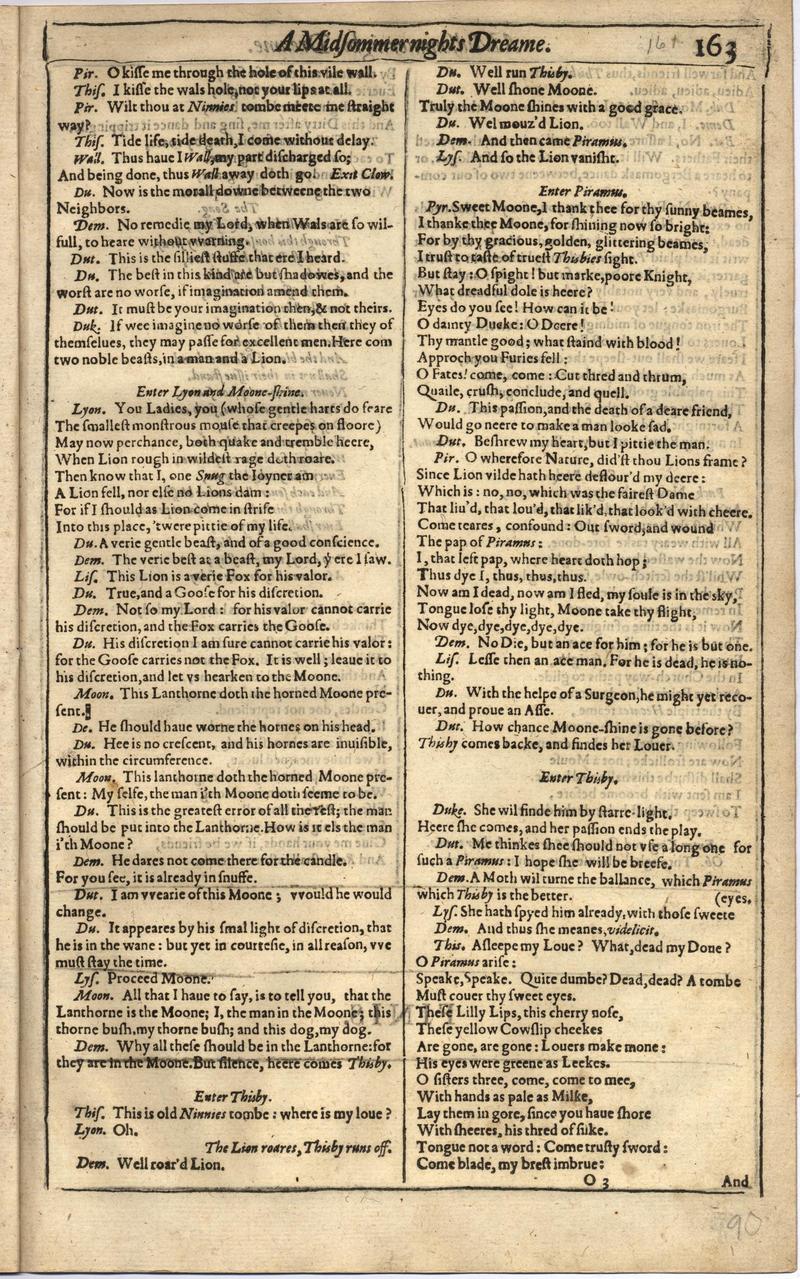 A Midsommer nights Dreame.
161
163
Pir. O kisse me through the hole of this vile wall.
Thiſ. I kiſſe the wals hole, not your lips at all.
Pir. Wilt thou at Ninnies tombe meete me ſtraight
way?
Thiſ. Tide life, tide death, I come without delay.
Wall. Thus haue I Wall, my part diſcharged ſo;
And being done, thus Wall away doth go. Exit Clow.
Du. Now is the morall downe betweene the two
Neighbors.
Dem. No remedie my Lord, when Wals are ſo wil-
full, to heare without warning.
Dut. This is the ſillieſt ſtuffe that ere I heard.
Du. The beſt in this kind are but ſhadowes, and the
worſt are no worſe, if imagination amend them.
Dut. It muſt be your imagination then, & not theirs.
Duk. If wee imagine no worſe of them then they of
themſelues, they may paſſe for excellent men. Here com
two noble beaſts, in a man and a Lion.
Enter Lyon and Moone-ſhine.
Lyon. You Ladies, you (whoſe gentle harts do feare
The ſmalleſt monſtrous mouſe that creepes on floore)
May now perchance, both quake and tremble heere,
When Lion rough in wildeſt rage doth roare.
Then know that I, one Snug the Ioyner am
A Lion fell, nor elſe no Lions dam:
For if I ſhould as Lion come in ſtrife
Into this place, 'twere pittie of my life.
Du. A verie gentle beaſt, and of a good conſcience.
Dem. The verie beſt at a beaſt, my Lord, ẏ ere I ſaw.
Liſ. This Lion is a verie Fox for his valor.
Du. True, and a Gooſe for his diſcretion.
Dem. Not ſo my Lord: for his valor cannot carrie
his diſcretion, and the Fox carries the Gooſe.
Du. His diſcretion I am ſure cannot carrie his valor:
for the Gooſe carries not the Fox. It is well; leaue it to
his diſcretion, and let vs hearken to the Moone.
Moon. This Lanthorne doth the horned Moone pre-
ſent.
De. He ſhould haue worne the hornes on his head.
Du. Hee is no creſcent, and his hornes are inuiſible,
within the circumference.
Moon. This lanthorne doth the horned Moone pre-
ſent: My ſelfe, the man i'th Moone doth ſeeme to be.
Du. This is the greateſt error of all the reſt; the man
ſhould be put into the Lanthorne. How is it els the man
i'th Moone?
Dem. He dares not come there for the candle.
For you ſee, it is already in ſnuffe.
Dut. I am vvearie of this Moone; vvould he would
change.
Du. It appeares by his ſmal light of diſcretion, that
he is in the wane: but yet in courteſie, in all reaſon, vve
muſt ſtay the time.
Lyſ. Proceed Moone.
Moon. All that I haue to ſay, is to tell you, that the
Lanthorne is the Moone; I, the man in the Moone; this
thorne buſh, my thorne buſh; and this dog, my dog.
Dem. Why all theſe ſhould be in the Lanthorne: for
they are in the Moone. But ſilence, heere comes Thisby.
Enter Thisby.
Thiſ. This is old Ninnies tombe: where is my loue?
Lyon. Oh.
The Lion roares, Thisby runs off.
Dem. Well roar'd Lion.
Du. Well run Thisby.
Dut. Well ſhone Moone.
Truly the Moone ſhines with a good grace.
Du. Wel mouz'd Lion.
Dem. And then came Piramus.
Lyſ. And ſo the Lion vaniſht.
Enter Piramus.
Pyr. Sweet Moone, I thank thee for thy ſunny beames,
I thanke thee Moone, for ſhining now ſo bright:
For by thy gracious, golden, glittering beames,
I truſt to taſte of trueſt Thisbies ſight.
But ſtay: O ſpight! but marke, poore Knight,
What dreadful dole is heere?
Eyes do you ſee! How can it be!
O dainty Ducke: O Deere!
Thy mantle good; what ſtaind with blood!
Approch you Furies fell:
O Fates! come, come: Cut thred and thrum,
Quaile, cruſh, conclude, and quell.
Du. This paſſion, and the death of a deare friend,
Would go neere to make a man looke ſad.
Dut. Beſhrew my heart, but I pittie the man.
Pir. O wherefore Nature, did'ſt thou Lions frame?
Since Lion vilde hath heere deflour'd my deere:
Which is: no, no, which was the faireſt Dame
That liu'd, that lou'd, that lik'd, that look'd with cheere.
Come teares, confound: Out ſword, and wound
The pap of Piramus:
I, that left pap, where heart doth hop;
Thus dye I, thus, thus, thus.
Now am I dead, now am I fled, my ſoule is in the sky,
Tongue loſe thy light, Moone take thy flight,
Now dye, dye, dye, dye, dye.
Dem. No Die, but an ace for him; for he is but one.
Liſ. Leſſe then an ace man. For he is dead, he is no-
thing.
Du. With the helpe of a Surgeon, he might yet reco-
uer, and proue an Aſſe.
Dut. How chance Moone-ſhine is gone before?
Thisby comes backe, and findes her Louer.
Enter Thisby.
Duke. She wil finde him by ſtarre-light.
Heere ſhe comes, and her paſſion ends the play.
Dut. Me thinkes ſhee ſhould not vſe a long one for
ſuch a Piramus: I hope ſhe will be breefe.
Dem. A Moth wil turne the ballance, which Piramus
which Thisby is the better. (eyes.
Lyſ. She hath ſpyed him already, with thoſe ſweete
Dem. And thus ſhe meanes, videlicit.
This. Aſleepe my Loue? What, dead my Doue?
O Piramus ariſe:
Speake, Speake. Quite dumbe? Dead, dead? A tombe
Muſt couer thy ſweet eyes.
Theſe Lilly Lips, this cherry noſe,
Theſe yellow Cowſlip cheekes
Are gone, are gone: Louers make mone:
His eyes were greene as Leekes.
O ſiſters three, come, come to mee,
With hands as pale as Milke,
Lay them in gore, ſince you haue ſhore
With ſheeres, his thred of ſilke.
Tongue not a word: Come truſty ſword:
Come blade, my breſt imbrue:
O 3
And
90